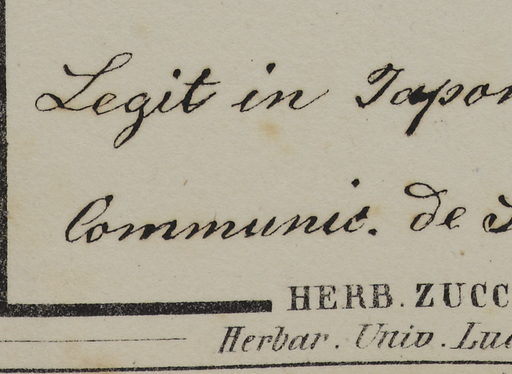 Legit in Japon
Communic. de
HERB. ZUCC
Herbar. Univ. Lud